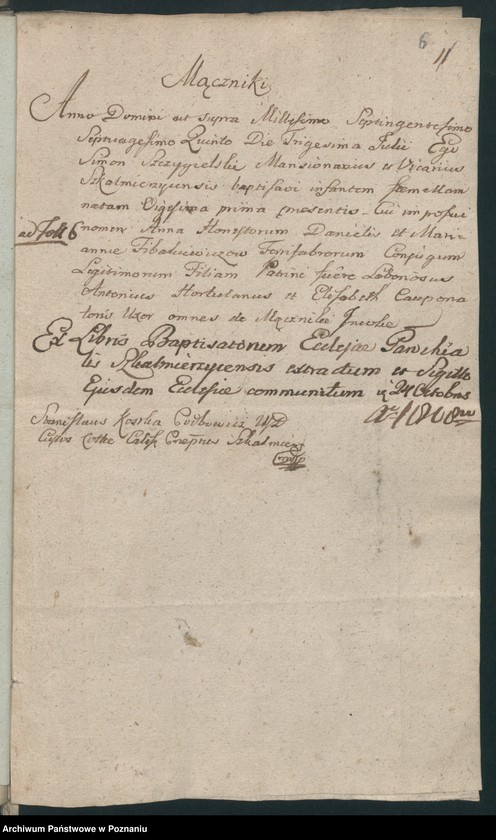 6 11
Mączniki
Anno Domini ut supra Millesimo Septingentesimo
Septuagesimo Quinto Die Trigesima Julii Ego
Simon Szczygielski Mansionarius et Vicarius
Szkalmirzycensis baptisavi infantem faemellam
natam Vigesima prima praesentis. Cui imposui
ad Foll 6 nomen Anna Honestorum Danielis et Mari
annae Conjugum
Legitimorum Filiam Patrini fuere Laboriosus
Antonius Hortulanus et Elisabeth Caupona
toris Uxor omnes de Mączniki Incolae
Ex Libris Baptisatorum Ecclesiae Parochia
lis Szkalmierzycensis extractum et Sigillo
Ejusdem Ecclesiae communitum d 24 Octobris
Stanislaus Kostka
Custos
Archiwum Państwowe w Poznaniu